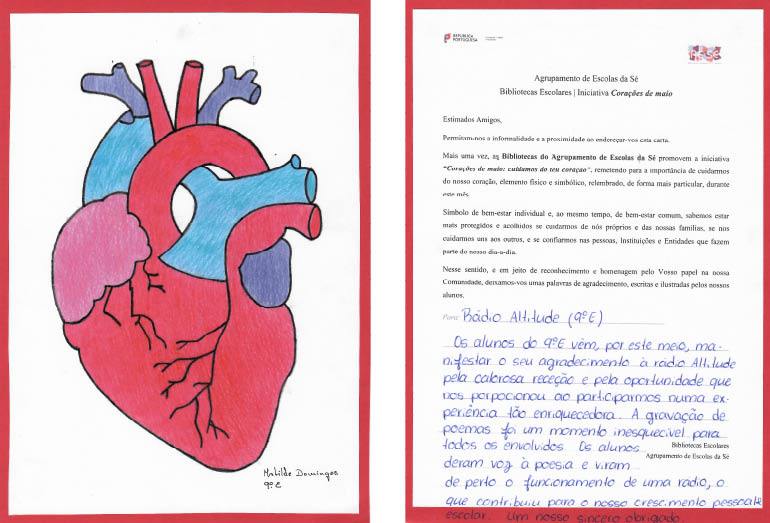 Matilde Domingos
9ºE
REPÚBLICA
PORTUGUESA
Agrupamento de Escolas da Sé
Bibliotecas Escolares | Iniciativa Corações de maio
Estimados Amigos,
Permitam-nos a informalidade e a proximidade ao endereçar-vos esta carta.
Mais uma vez, as Bibliotecas do Agrupamento de Escolas da Sé promovem a iniciativa
“Corações de maio: cuidamos do teu coração”, remetendo para a importância de cuidarmos
do nosso coração, elemento físico e simbólico, relembrado, de forma mais particular, durante
este mês.
Símbolo de bem-estar individual e, ao mesmo tempo, de bem-estar comum, sabemos estar
mais protegidos e acolhidos se cuidarmos de nós próprios e das nossas famílias, se nos
cuidarmos uns aos outros, e se confiarmos nas pessoas, Instituições e Entidades que fazem
parte do nosso dia-a-dia.
Nesse sentido, e em jeito de reconhecimento e homenagem pelo Vosso papel na nossa
Comunidade, deixamo-vos umas palavras de agradecimento, escritas e ilustradas pelos nossos
alunos.
Para: Rádio Altitude (9ºE)
Os alunos do 9ºE vêm, por este meio, ma-
nifestar o seu agradecimento à rádio Altitude
pela calorosa receção e pela oportunidade que
nos porpocionou ao participarmos numa ex-
periência tão enriquecedora. A gravação de
poemas foi um momento inesquecível para
todos os envolvidos. Os alunos
Bibliotecas Escolares
Agrupamento de Escolas da Sé
deram voz à poesia e viram
de perto o funcionamento de uma rádio, o
que contribuiu para o nosso crescimento pessoal e
escolar. Um nosso sincero obrigado